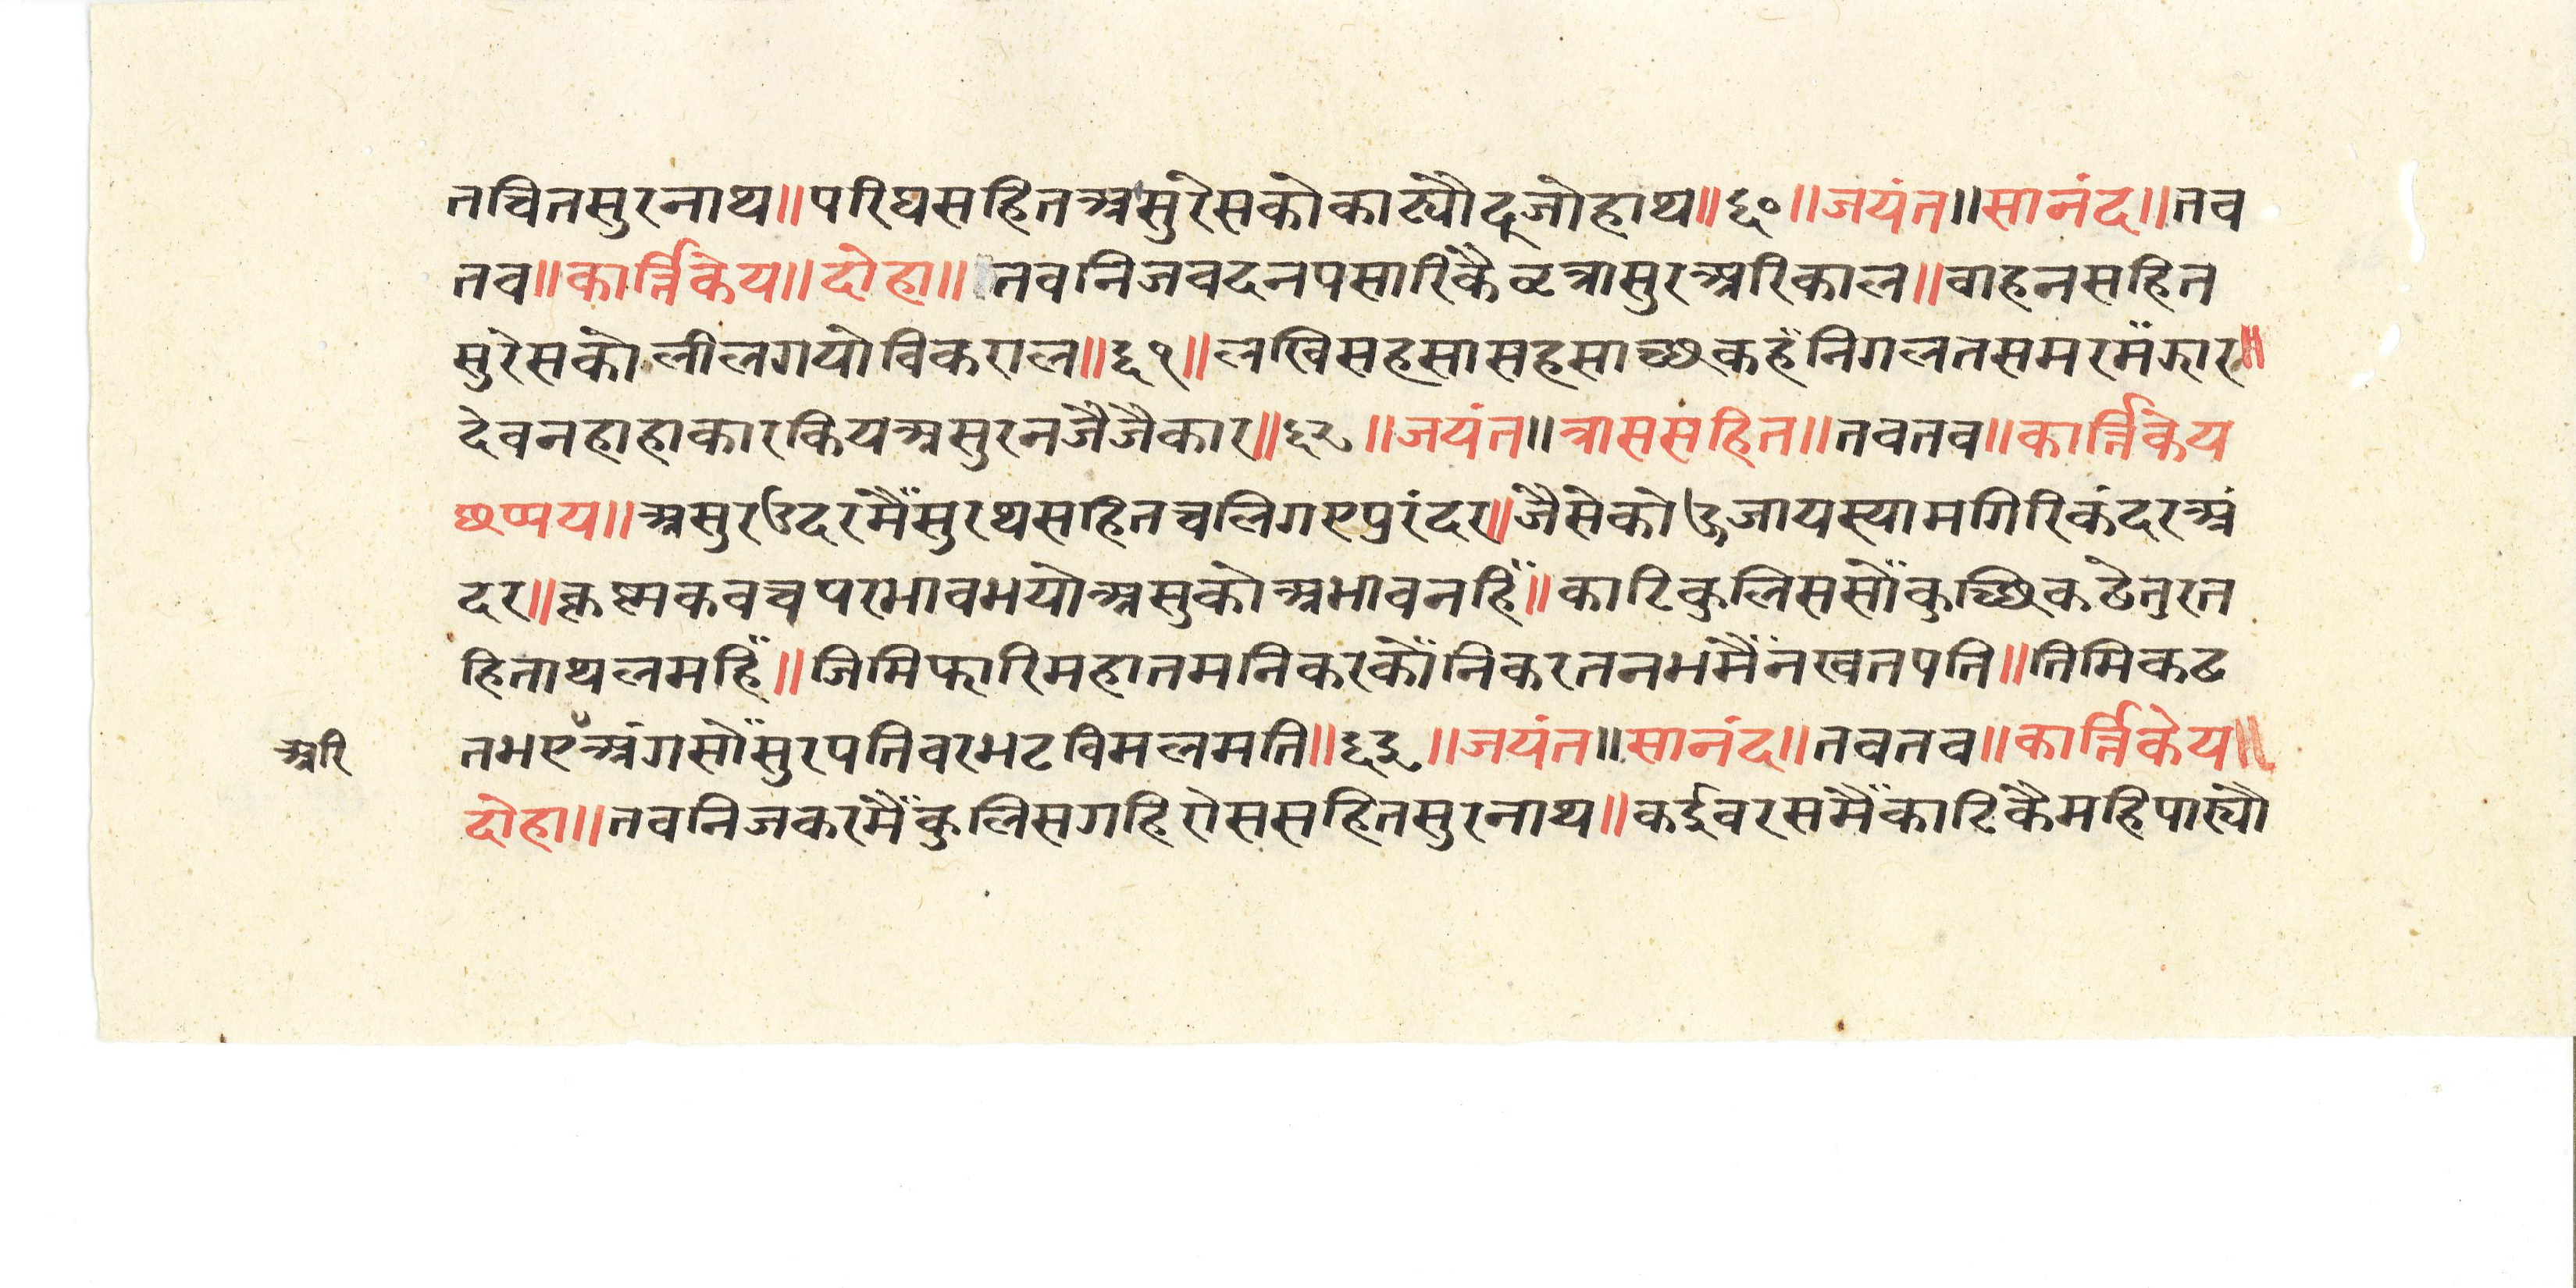 तचितसुरनाथ॥परिघसहितअसुरेसकोकाट्यौदूजोहाथ॥६०॥जयंत॥सानंद॥तव
तव॥कार्त्तिकेय॥दोहा॥तवनिजवदनपसारिकैवृत्रासुरअरिकाल॥वाहनसहित
सुरेसकोलीलगयोविकराल॥६१॥लखिसहसासहसाच्छकहँनिगलतसमरमँझार॥
देवनहाहाकारकियअसुरनजैजैकार॥६२॥जयंत॥त्राससहित॥तवतव॥कार्त्तिकेय
छप्पय॥असुरउदरमैँसुरथसहितचलिगएपुरंदर॥जैसेकोउजायस्यामगिरिकंदरअं
दर॥कृष्णकवचपरभावभयोअसुकोअभावनहिँ॥काटिकुलिससोँकुच्छिकढेतुरत
हिनाथलमहिँ॥जिमिफारिमहातमनिकरकौँनिकरतनभमैँनखतपति॥तिमिकढ
अरि
तभएअंगसोँसुरपतिवरभटविमलमति॥६३॥जयंत॥सानंद॥तवतव॥कार्त्तिकेय॥
दोहा॥तवनिजकरमैँकुलिसगहिरोससहितसुरनाथ॥कईवरसमैँकाटिकैमहिपास्यौ